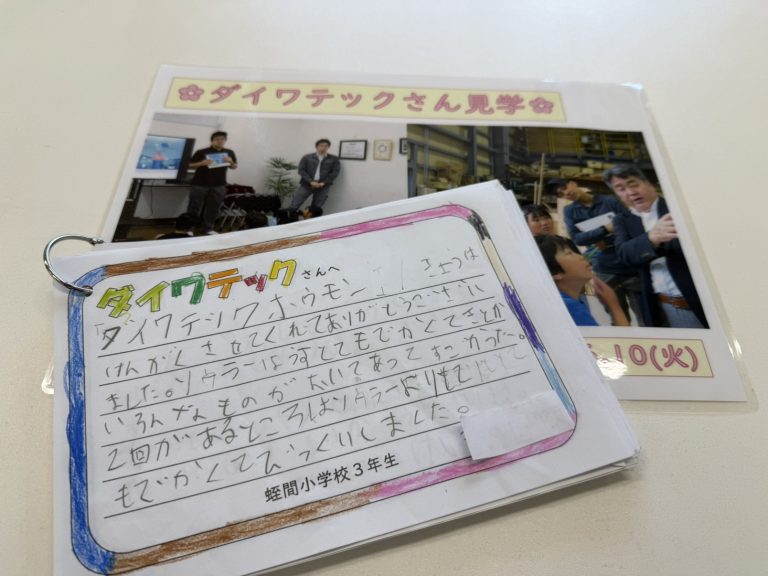 ✿ダイワテックさん見学✿
10(火)
ダイワテックさんへ
「ダイワテックホウモン」 きょうは
けんがくさせてくれてありがとうござい
ました。ソウラーは とてもでかくて
いろんなものが あってすごかった。
2回があるところはソウラーよりも
もでかくてびっくりしました。
蛭間小学校3年生